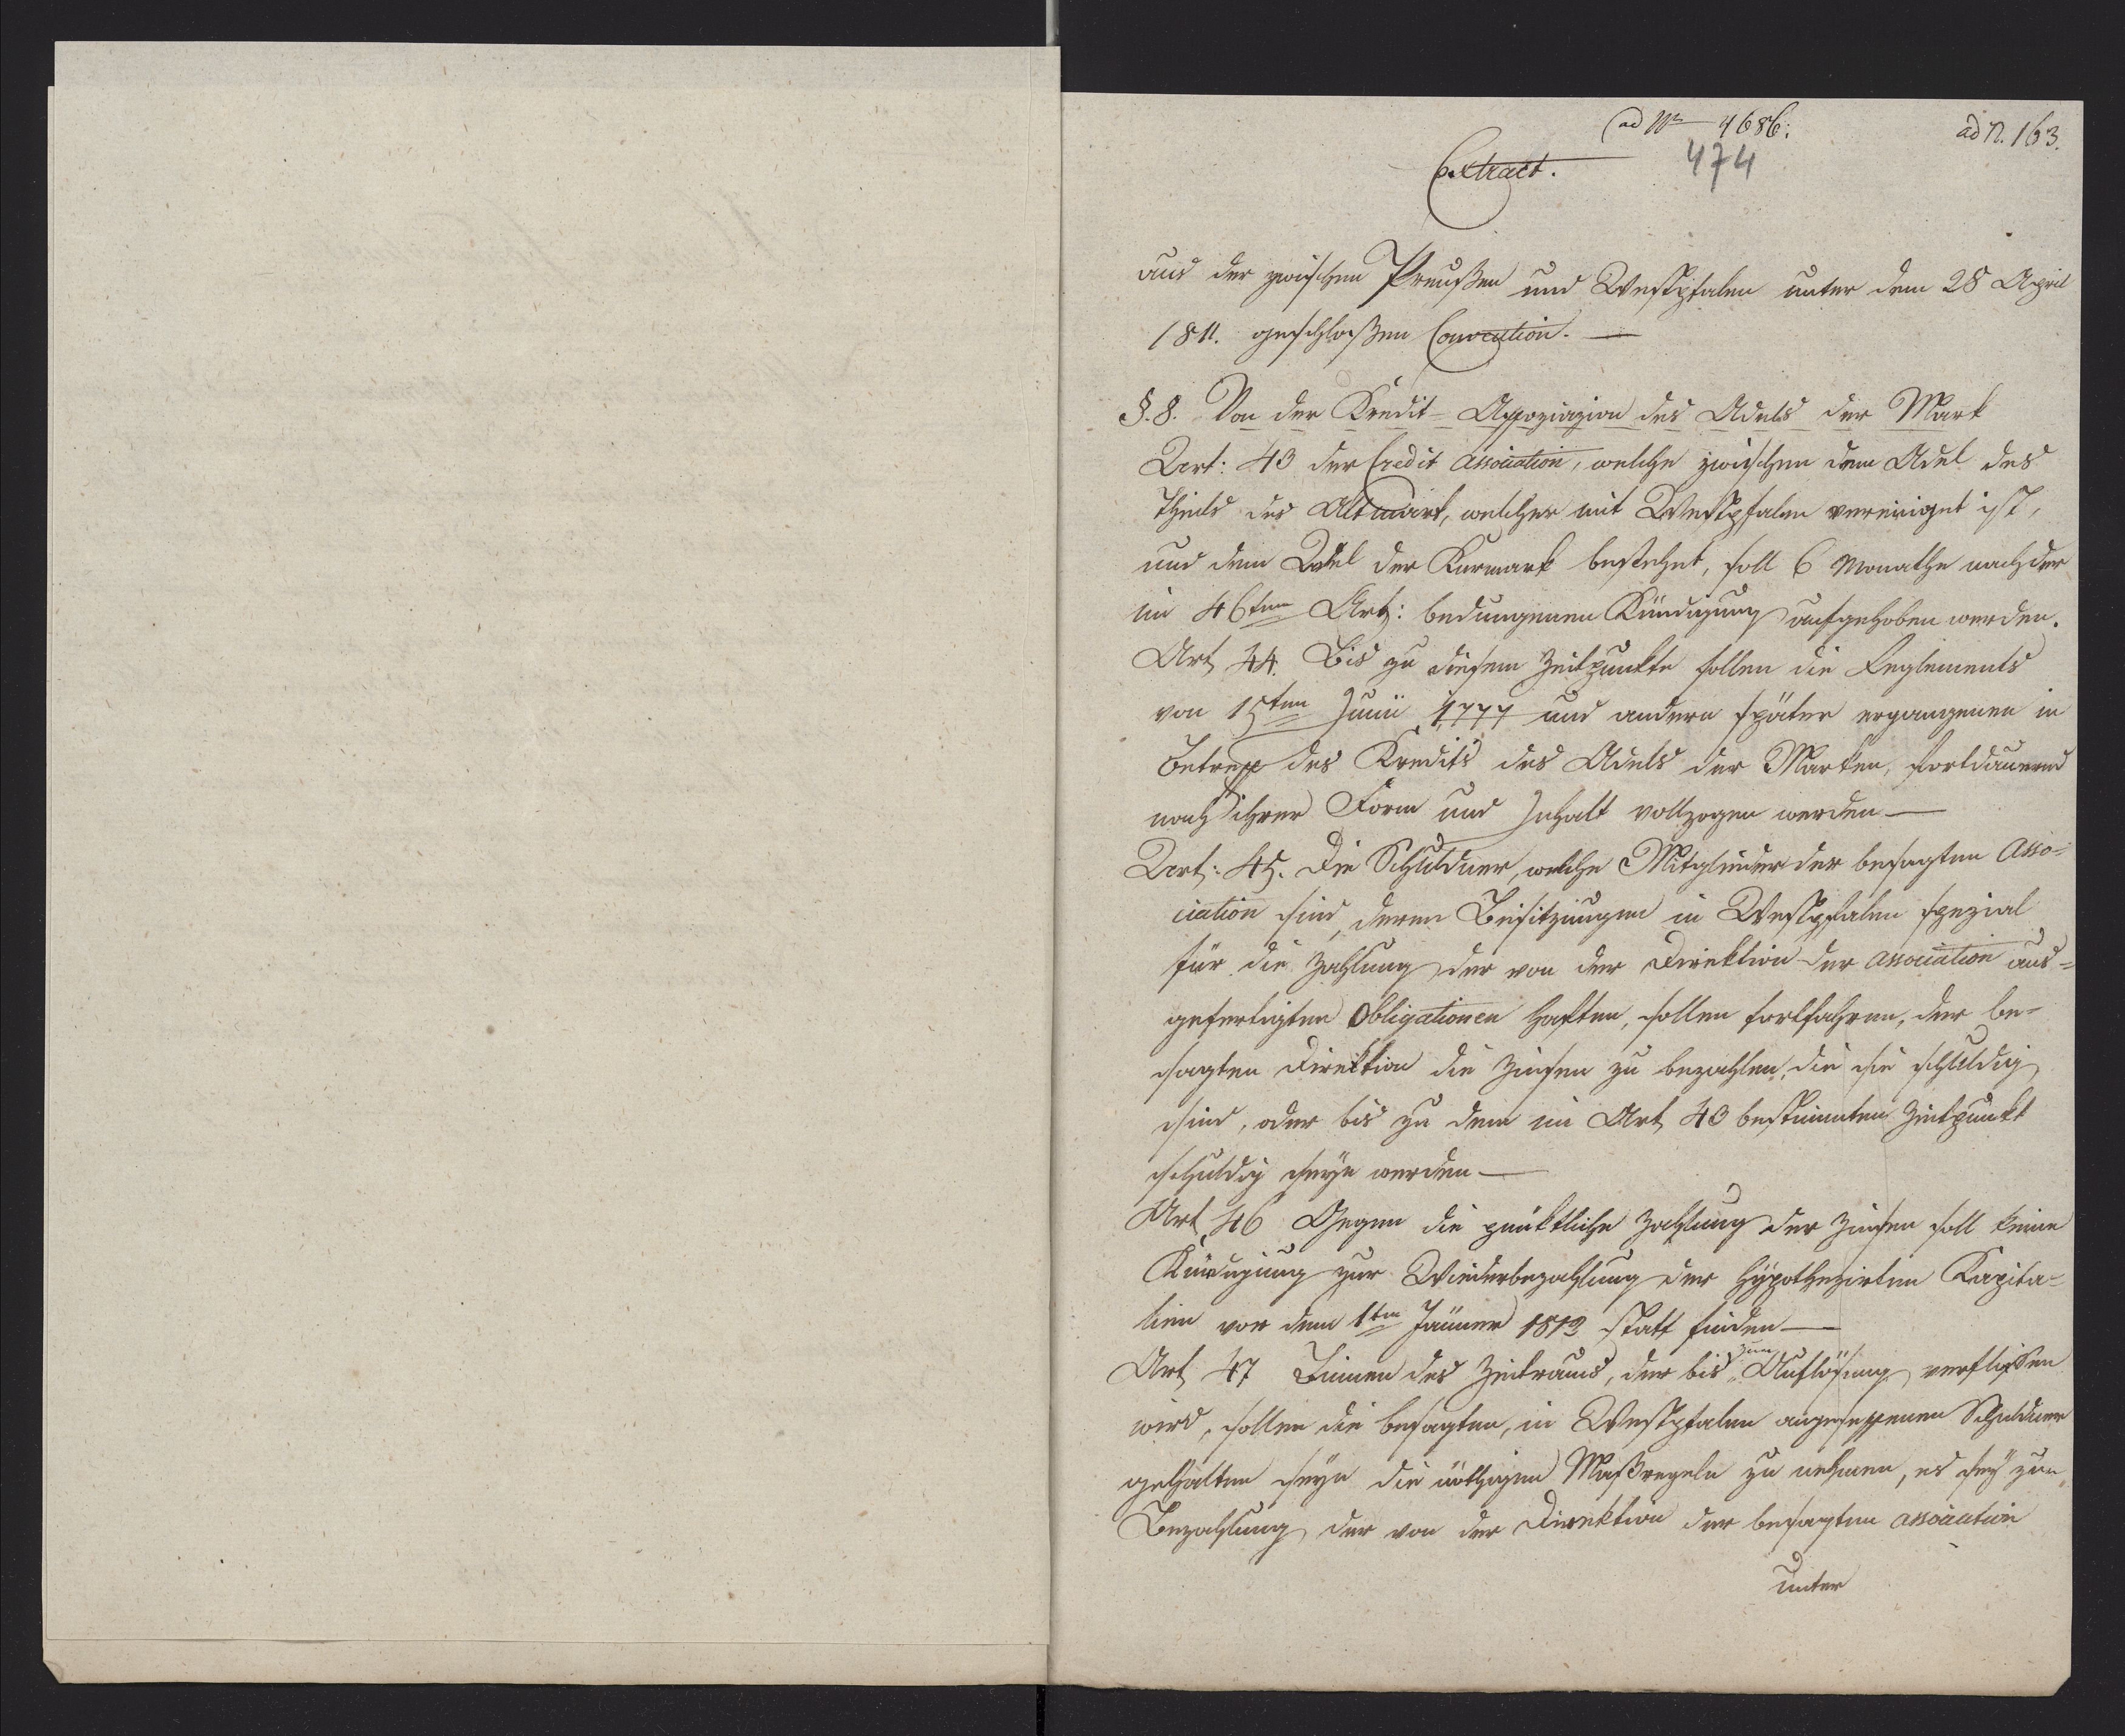 ad Nr 4686.
ad N. 163.
474
Extract.
aus der zwischen Preußen und Westpfalen unter dem 28 April
1811. geschloßenen Convention. —
§. 8. Von der Kredit-Assoziazion des Adels der Mark
Art: 43 der Credit association, welche zwischen dem Adel des
Theils der Altmark, welcher mit Westpfalen vereiniget ist,
und dem Adel der Kurmark bestehet, soll 6 Monathe nach der
im 46ten Art: bedungenen Kündigung aufgehoben werden.
Art, 44. Bis zu diesem Zeitpunkte sollen die Reglements
von 15ten Junii 1777 und andern später ergangenen in
Betreff des Kredits des Adels der Marken, fortdauernd
nach ihrer Form und Inhalt vollzogen werden —
Art: 45. Die Schuldner, welche Mitglieder der besagten Asso-
ciation sind, deren Besitzungen in Westpfalen spezial
für die Zahlung der von der Direktion der association aus-
gefertigten Obligationen haften, sollen fortfahren, der be-
sagten Direktion die Zinsen zu bezahlen, die sie schuldig
sind, oder bis zu dem im Art, 43 bestimmten Zeitpunkt
schuldig seyn werden —
Art, 46 Gegen die pünktliche Zahlung der Zinsen soll keine
Kündigung zur Wiederbezahlung der hypothezirten Kapita-
lien vor dem 1ten Jänner 1813 statt finden —
Art, 47 Binnen des Zeitraums, der bis zum Auflösung verfließen
wird, sollen die besagten, in Westpfalen angesessenen Schuldner
gehalten seyn die nöthigen Maßregeln zu nehmen, es sey zur
Bezahlung der von der Direktion der besagten association
unter